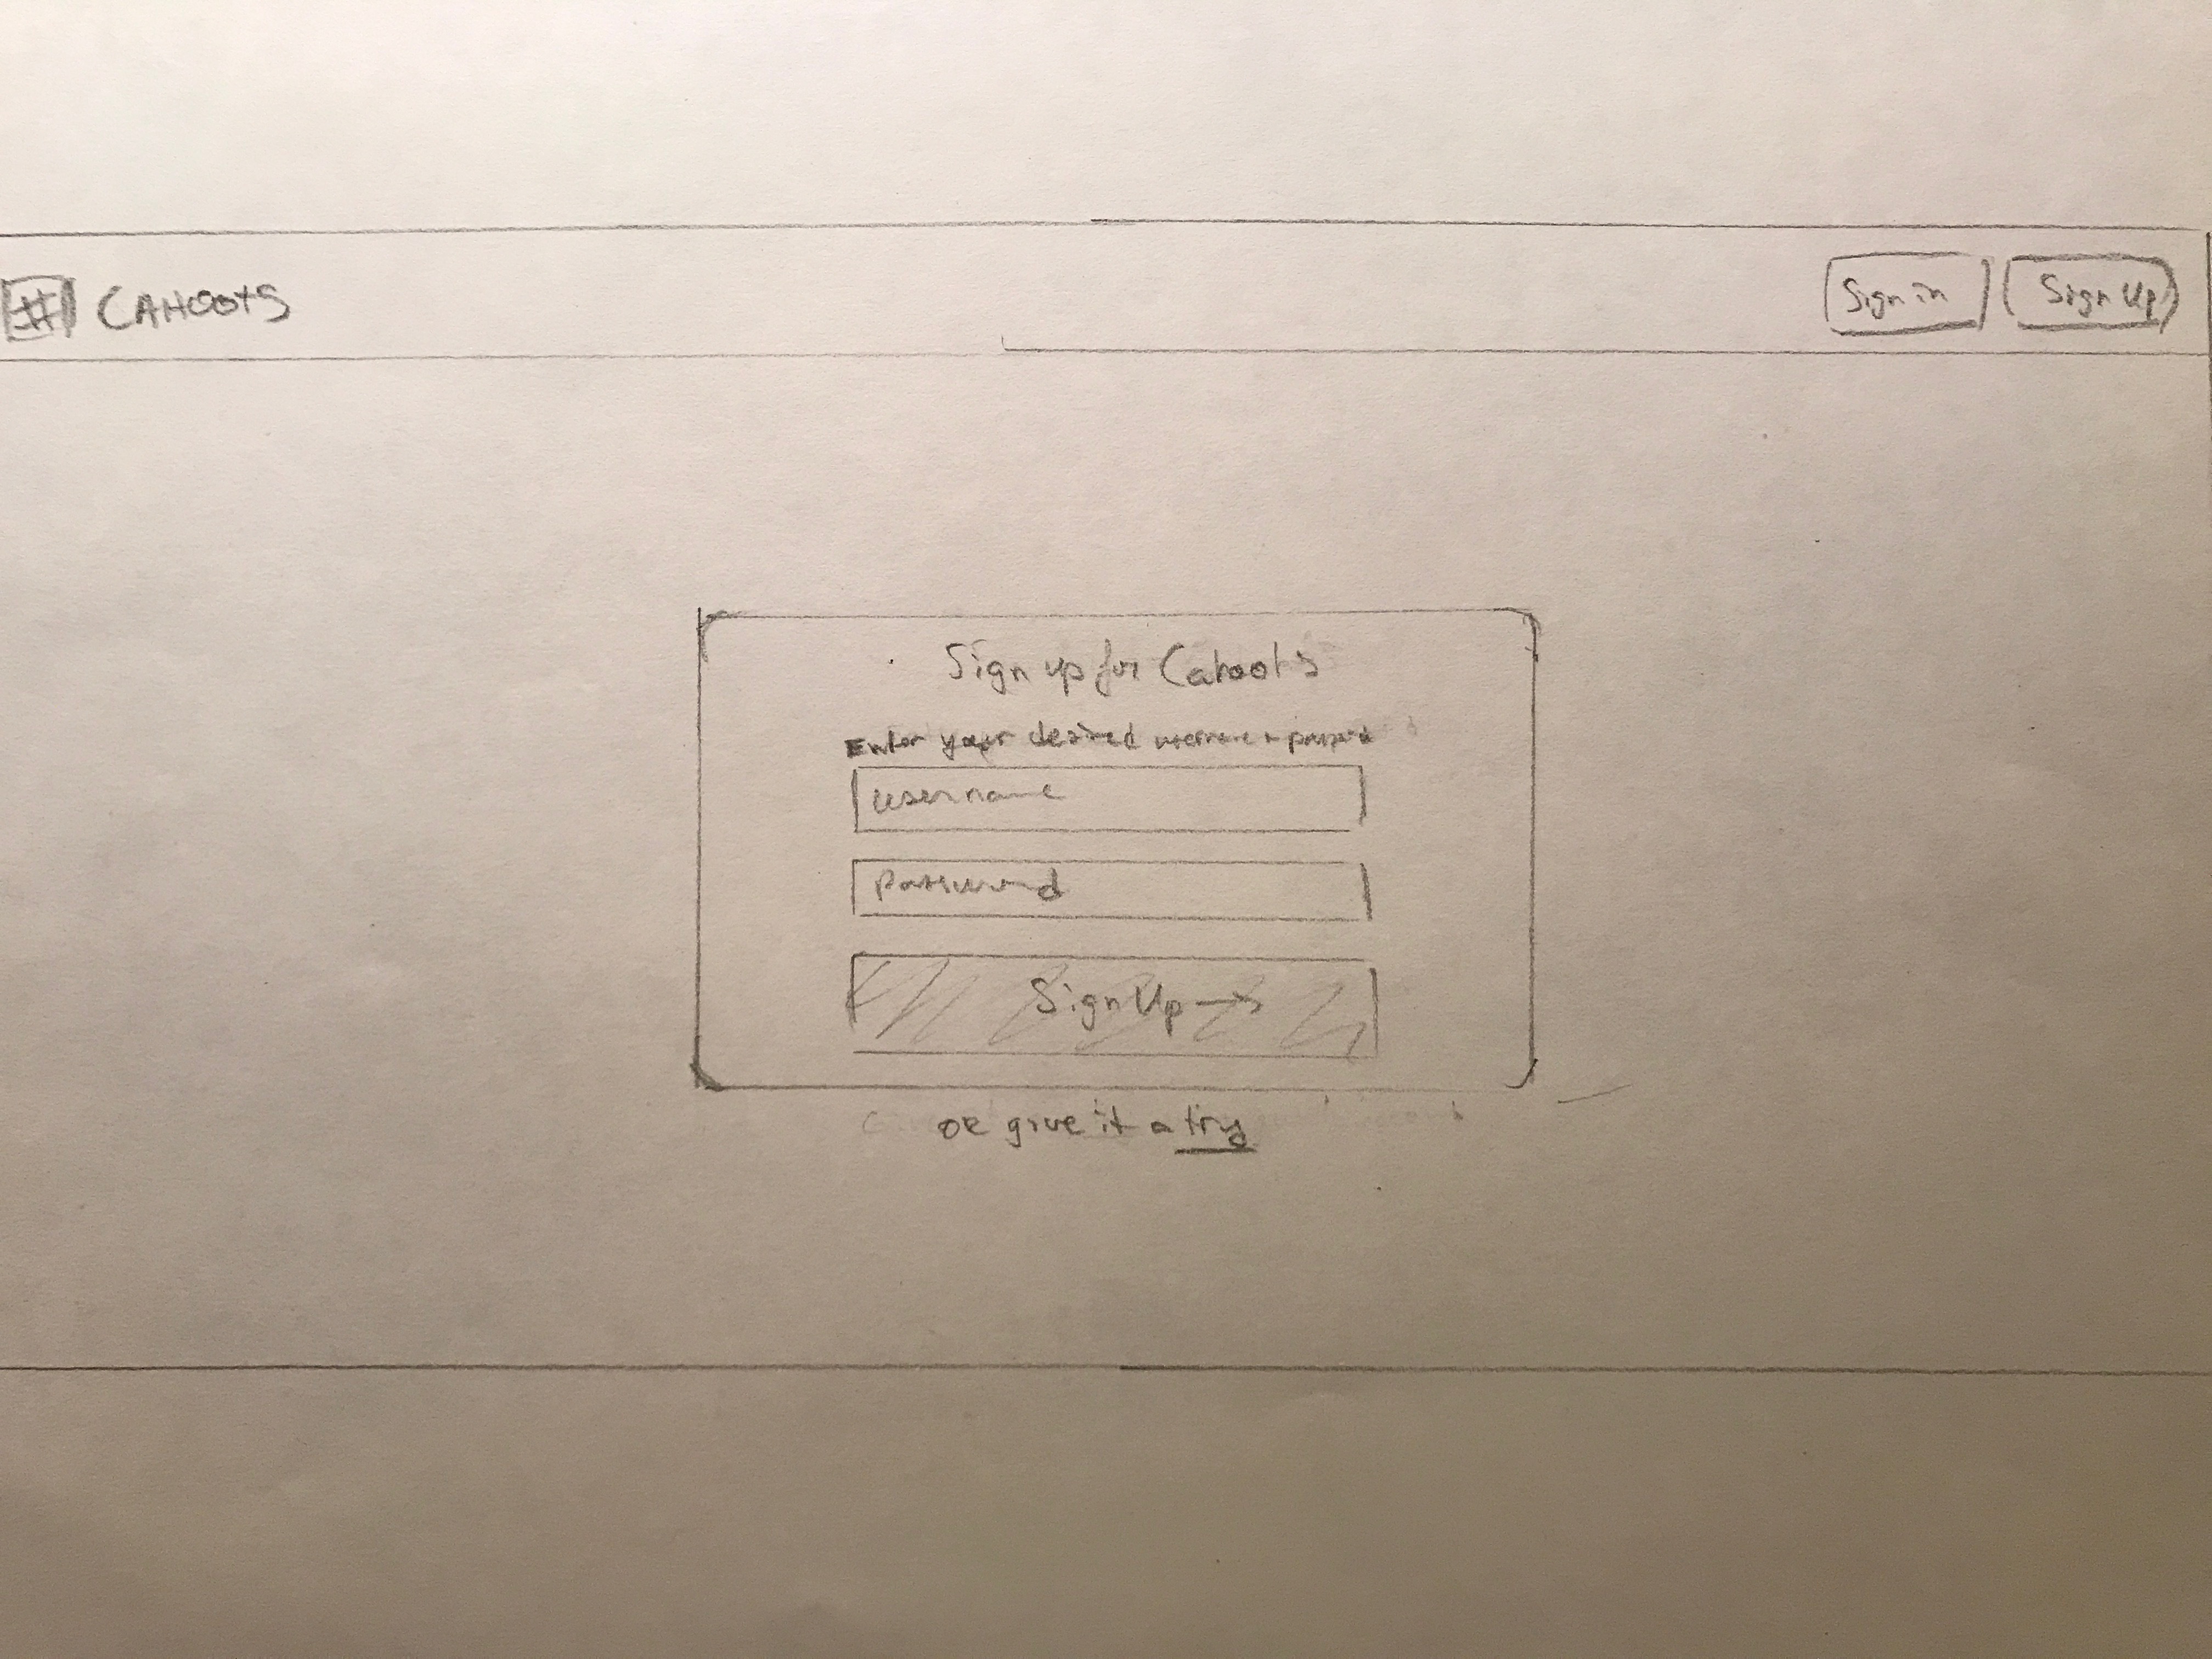 # CAHOOTS
Sign in
Sign Up
Sign up for Cahoots
Enter your desired username + password
username
password
Sign Up →
OR give it a try